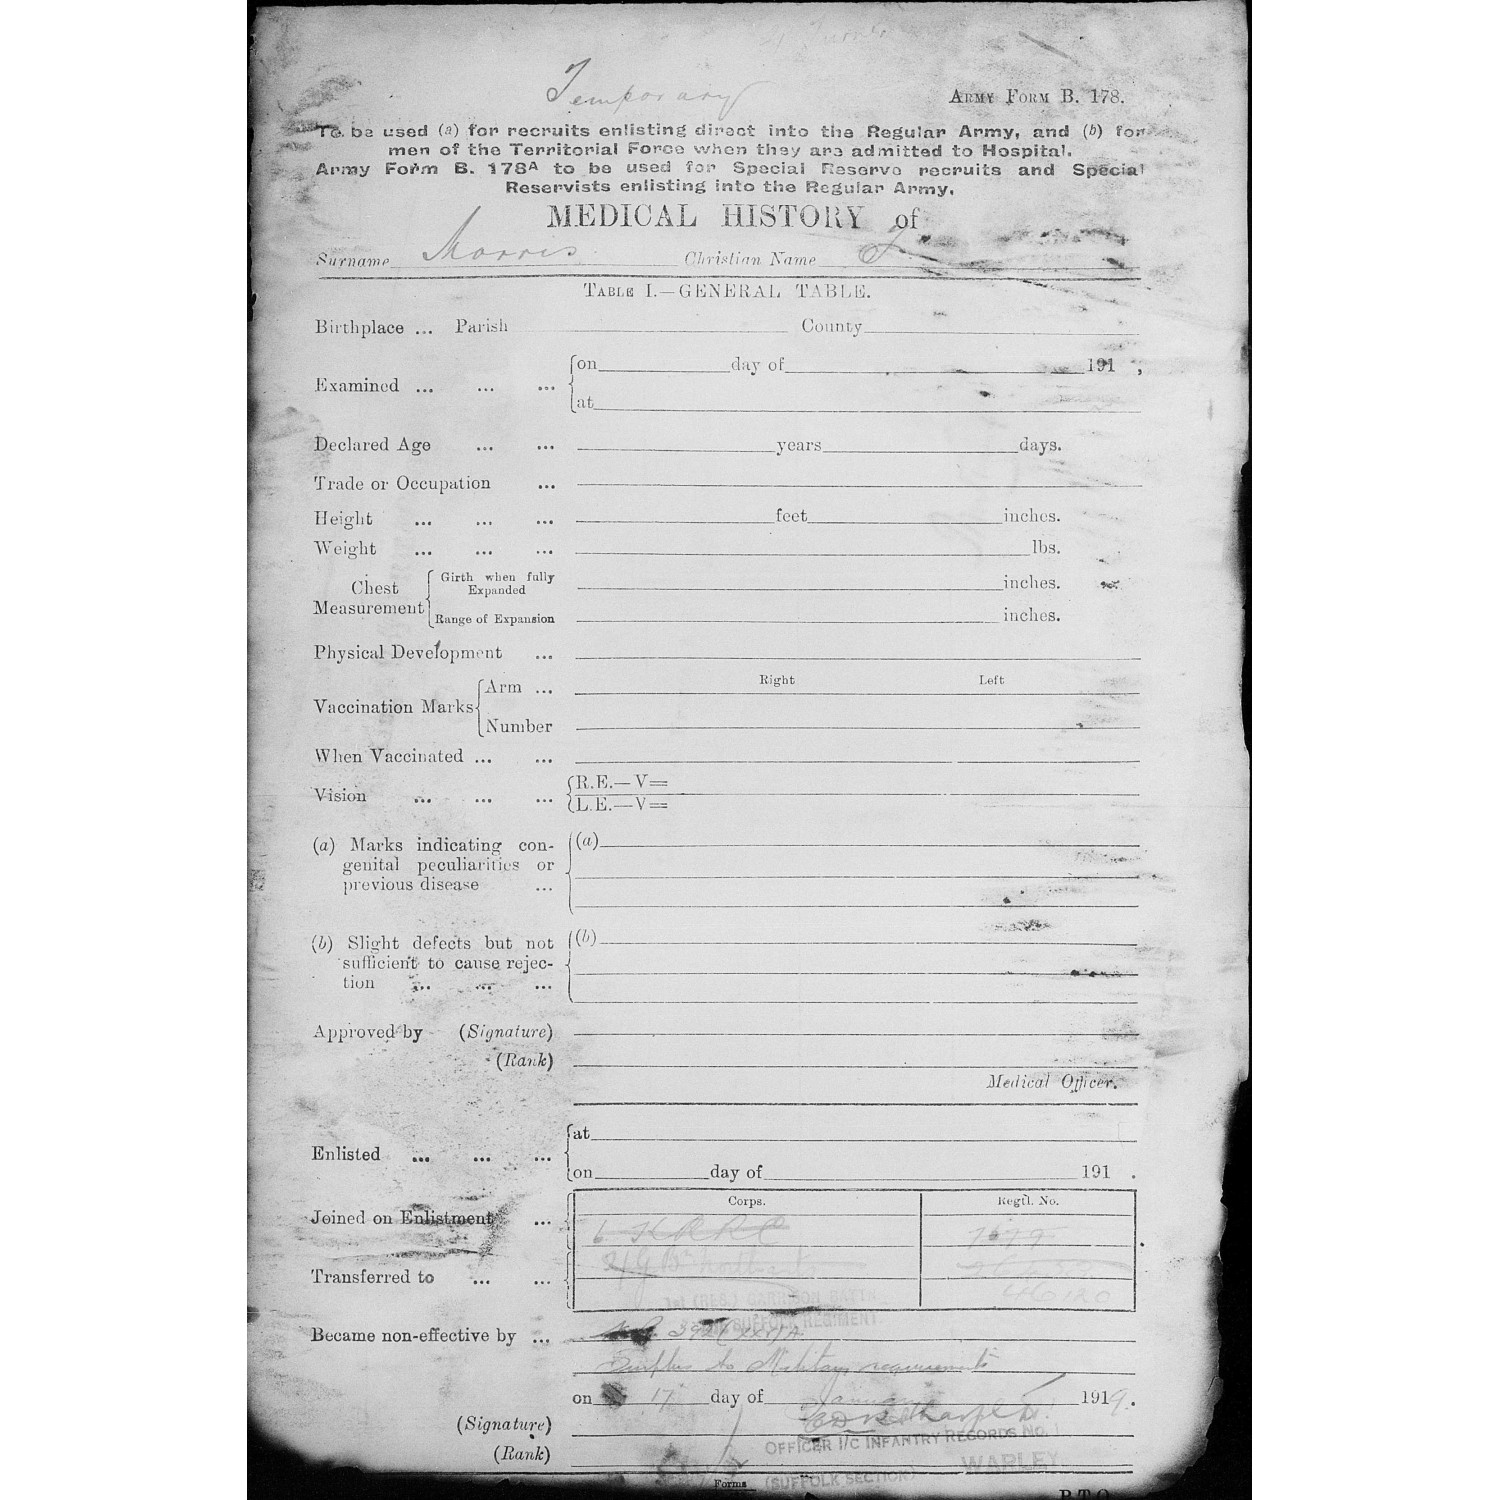 Temporary
ARMY FORM B. 178.
To be used (a) for recruits enlisting direct into the Regular Army, and (b) for
men of the Territorial Force when they are admitted to Hospital.
Army Form B. 178A to be used for Special Reserve recruits and Special
Reservists enlisting into the Regular Army.
MEDICAL HISTORY of
Surname Morris Christian Name
TABLE I.—GENERAL TABLE.
Birthplace ... Parish County
on day of 191 ,
Examined ... ... ...
at
Declared Age ... ... years days.
Trade or Occupation ...
Height ... ... ... feet inches.
Weight ... ... ... lbs.
Girth when fully Expanded inches.
Chest Measurement
Range of Expansion inches.
Physical Development ...
Right Left
Arm ...
Vaccination Marks
Number
When Vaccinated ... ...
R.E.—V=
Vision ... ... ...
L.E.—V=
(a) Marks indicating con- (a)
genital peculiarities or
previous disease ...
(b) Slight defects but not (b)
sufficient to cause rejec-
tion ... ... ...
Approved by (Signature)
(Rank)
Medical Officer.
at
Enlisted ... ... ...
on day of 191 .
Corps. Regtl. No.
Joined on Enlistment ... 6 KRRC
Transferred to ... ... Northants
46120
1st (RES.) GARRISON BATTN.
SUFFOLK REGIMENT.
Became non-effective by ... 392 (xvi) A
Surplus to Military requirements
on 17 day of January 1919.
(Signature)
OFFICER I/C INFANTRY RECORDS No. 1
(Rank) WARLEY
(SUFFOLK SECTION)
Forms
P.T.O.